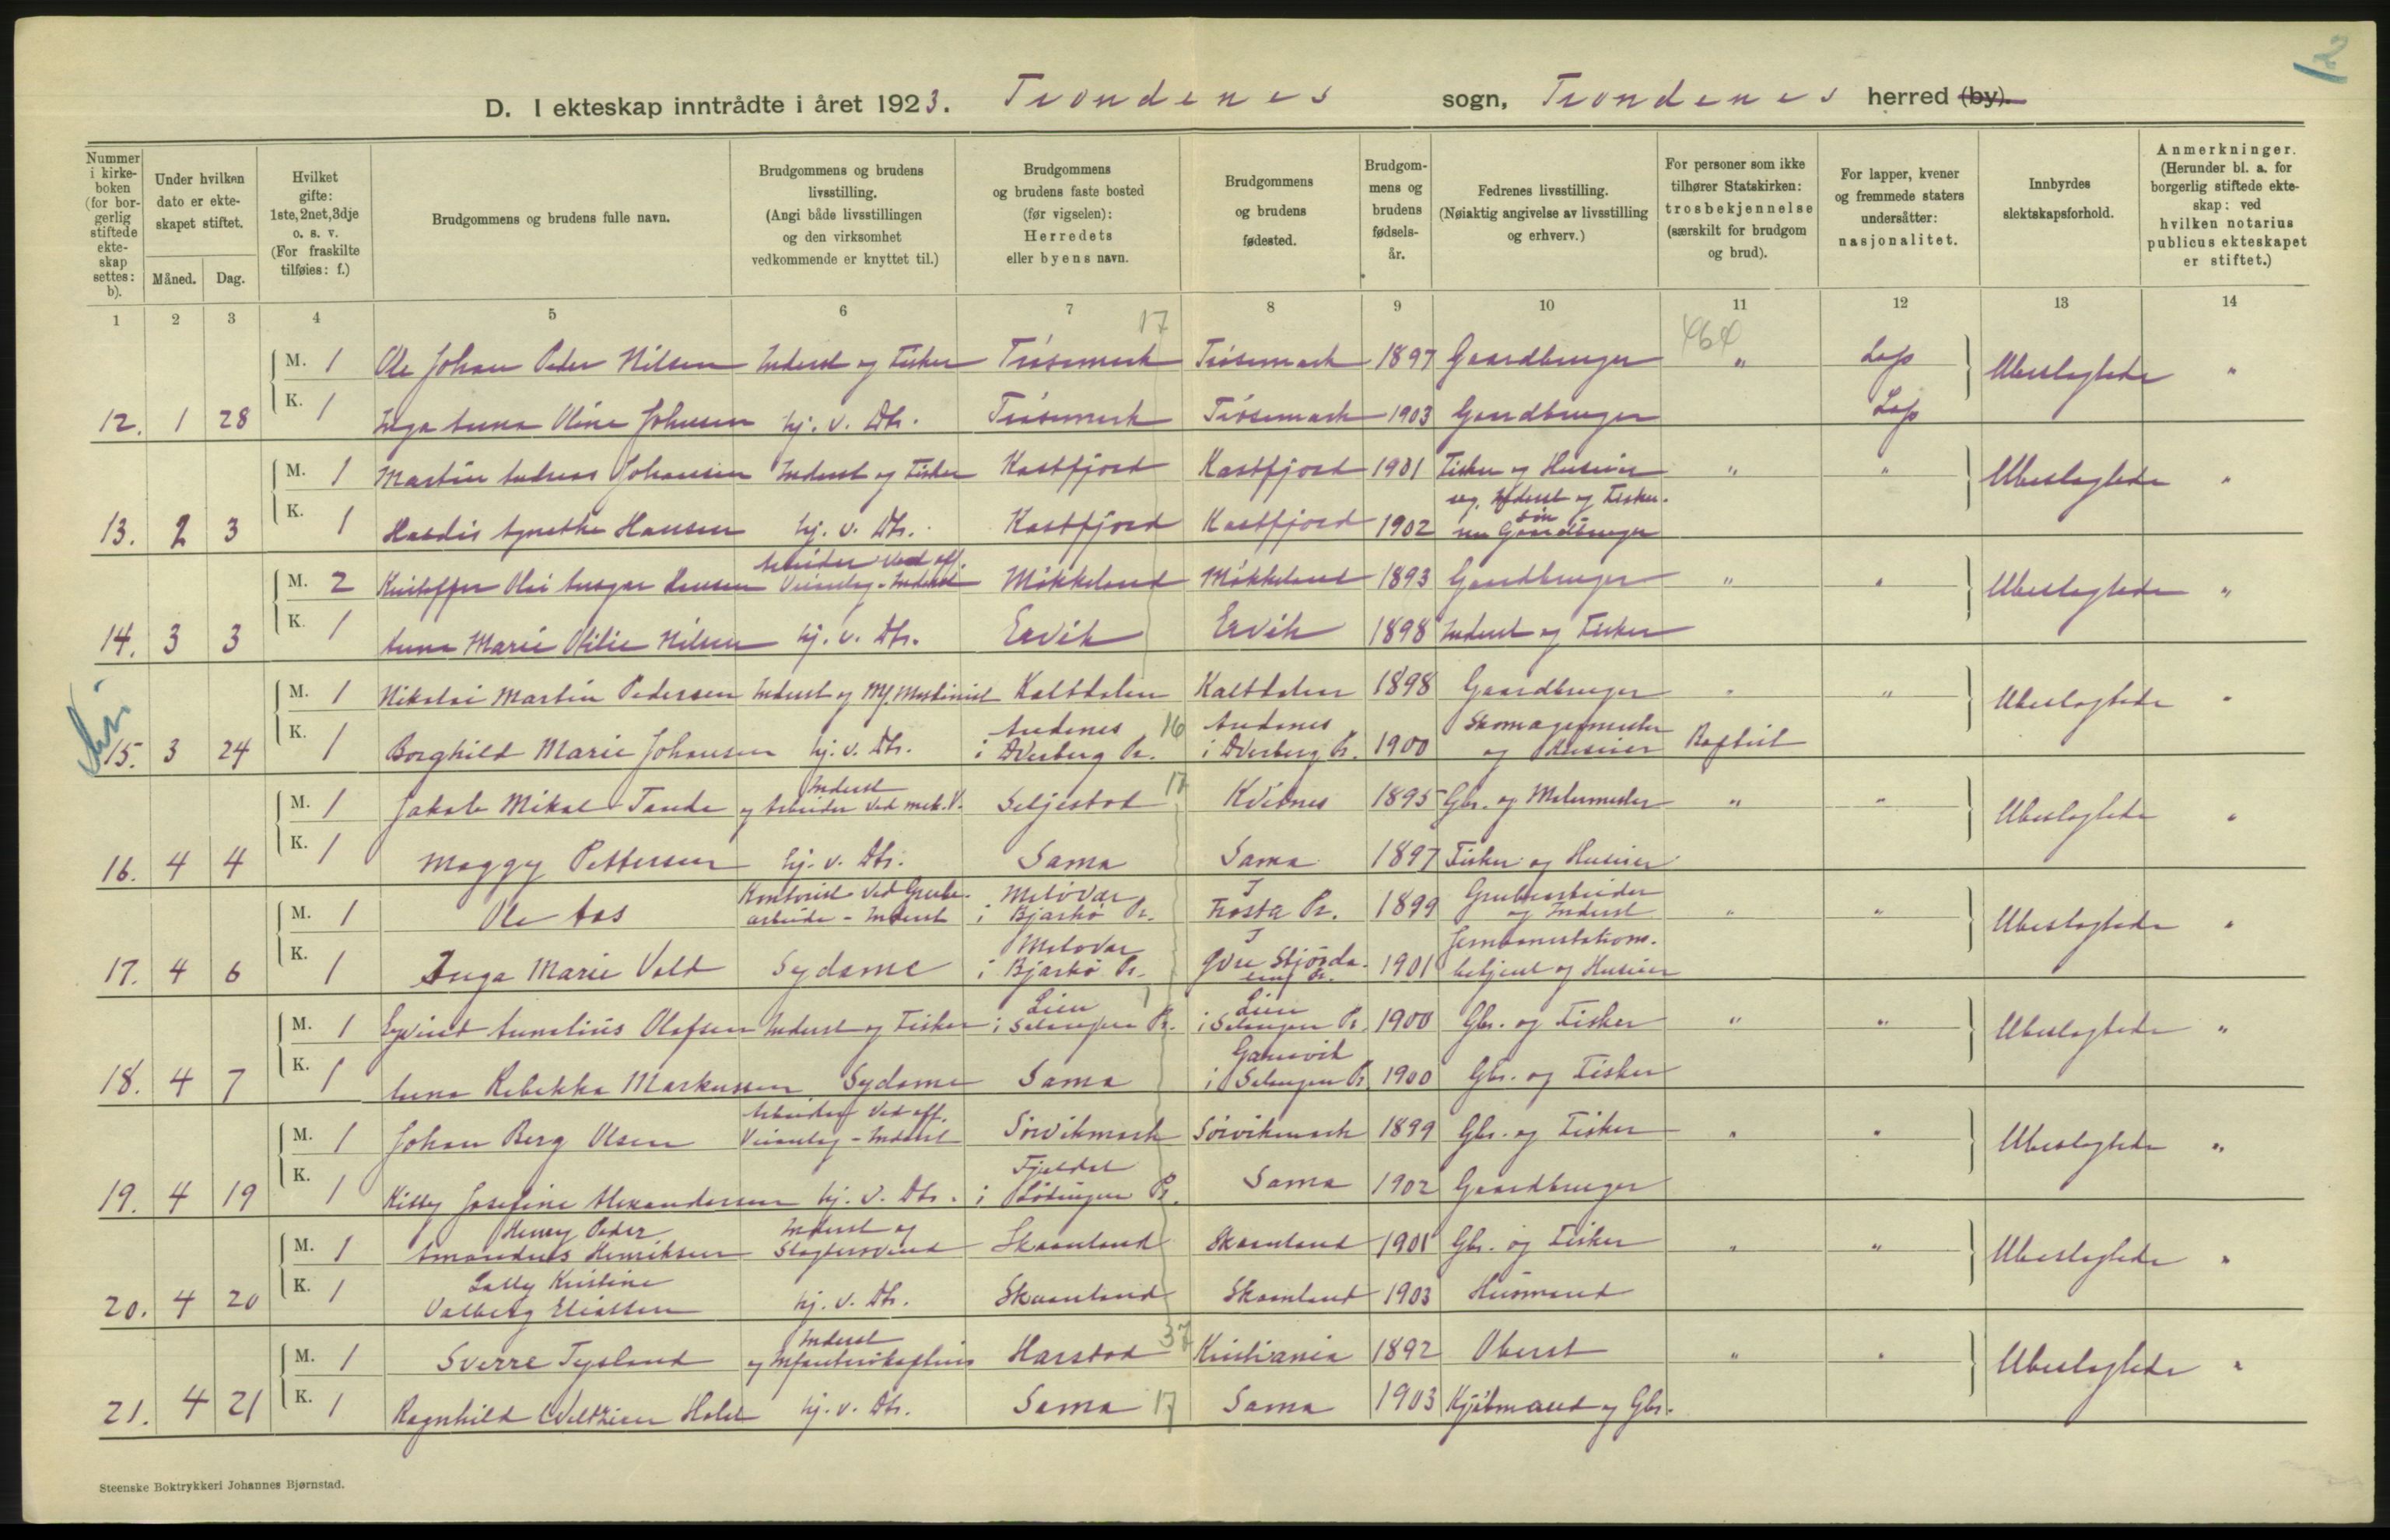 2
D. I ekteskap inntrådte i året 1923. Trondenes sogn, Trondenes herred (by).
Nummer i kirke-boken (for bor-gerlig stiftede ekte-skap settes: b).
Under hvilken dato er ekte-skapet stiftet.
Måned. Dag.
Hvilket gifte: 1ste, 2net, 3dje o. s. v. (For fraskilte tilføies: f.)
Brudgommens og brudens fulle navn.
Brudgommens og brudens livsstilling. (Angi både livsstillingen og den virksomhet vedkommende er knyttet til.)
Brudgommens og brudens faste bosted (før vigselen): Herredets eller byens navn.
Brudgommens og brudens fødested.
Brudgom-mens og brudens fødsels-år.
Fedrenes livsstilling. (Nøiaktig angivelse av livsstilling og erhverv.)
For personer som ikke tilhører Statskirken: trosbekjennelse (særskilt for brudgom og brud).
For lapper, kvener og fremmede staters undersåtter: nasjonalitet.
Innbyrdes slektskapsforhold.
Anmerkninger. (Herunder bl. a. for borgerlig stiftede ekte-skap: ved hvilken notarius publicus ekteskapet er stiftet.)
1 2 3 4 5 6 7 8 9 10 11 12 13 14
17
M. 1 Ole Johan Peder Nilsen Inderst og Fisker Trøsemark Trøsemark 1897 Gaardbruger " Lap Ubeslegtede "
12. 1 28 K. 1 Inga Anna Oline Johnsen hj. v. Dtr. Trøsemark Trøsemark 1903 Gaardbruger Lap
M. 1 Martin Andreas Johansen Inderst og Fisker Kastfjord Kastfjord 1901 Fisker og Huseier " " Ubeslegtede "
og Fisker.
13. 2 3 K. 1 Hansen hj. v. Dtr. Kastfjord Kastfjord 1902 Gaardbruger
Arbeider ved off.
M. 2 Kristoffer Olai Ansgar Hansen Veianlæg - Inderst Møkkeland Møkkeland 1893 Gaardbruger " " Ubeslegtede "
14. 3 3 K. 1 Anna Marie Otilie Nilsen hj. v. Dtr. Ervik Ervik 1898 Inderst og Fisker
M. 1 Nikolai Martin Pedersen Inderst og Maskinist Kaltdalen Kaltdalen 1898 Gaardbruger " " Ubeslegtede "
Andenes 16 Andenes Skomagermester
15. 3 24 K. 1 Borghild Marie Johansen hj. v. Dtr. i Dverberg Pr. i Dverberg Pr. 1900 og Huseier Baptist
Inderst 17
M. 1 Jakob Mikal Tande og Arbeider ved mek. V. Seljestad Kvitnes 1895 Gbr. og Malermester " " Ubeslegtede "
16. 4 4 K. 1 Maggy Pettersen hj. v. Dtr. Sama Sama 1897 Fisker og Huseier
Kontorist ved Grube- Meløvær I Grubearbeider
M. 1 Ole Aas arbeide - Inderst i Bjarkø Pr. Frosta Pr. 1899 og Inderst " " Ubeslegtede "
Meløvær I Jernbanestations-
17. 4 6 K. 1 Inga Marie Vold Sydame i Bjarkø Pr. Øvre Stjørda- 1901 betjent og Huseier
lens Pr.
Lien Lien
M. 1 Eyvind Anselius Olafsen Inderst og Fisker i Salangen Pr. i Salangen Pr. 1900 Gbr. og Fisker " " Ubeslegtede "
18. 4 7 K. 1 Anna Rebekka Markussen Sydame Sama i Salangen Pr. 1900 Gbr. og Fisker
Arbeider ved off.
M. 1 Johan Berg Olsen Veianlæg - Inderst Sørvikmark Sørvikmark 1899 Gbr. og Fisker " " Ubeslegtede "
Fjeldal
19. 4 19 K. 1 Kitty Josefine Alexandersen hj. v. Dtr. i Lødingen Pr. Sama 1902 Gaardbruger
Henry Peder Inderst og
M. 1 Amandus Henriksen Slagtersvend Skaanland Skaanland 1901 Gbr. og Fisker " " Ubeslegtede "
Lally Kristine
20. 4 20 K. 1 Valborg Eliassen hj. v. Dtr. Skaanland Skaanland 1903 Husmand
Inderst 37
M. 1 Sverre Tysland og Infanterikaptein Harstad Kristiania 1892 Oberst " " Ubeslegtede "
21. 4 21 K. 1 Ragnhild Holst hj. v. Dtr. Sama 17 Sama 1903 Kjøbmand og Gbr.
Steenske Boktrykkeri Johannes Bjørnstad.